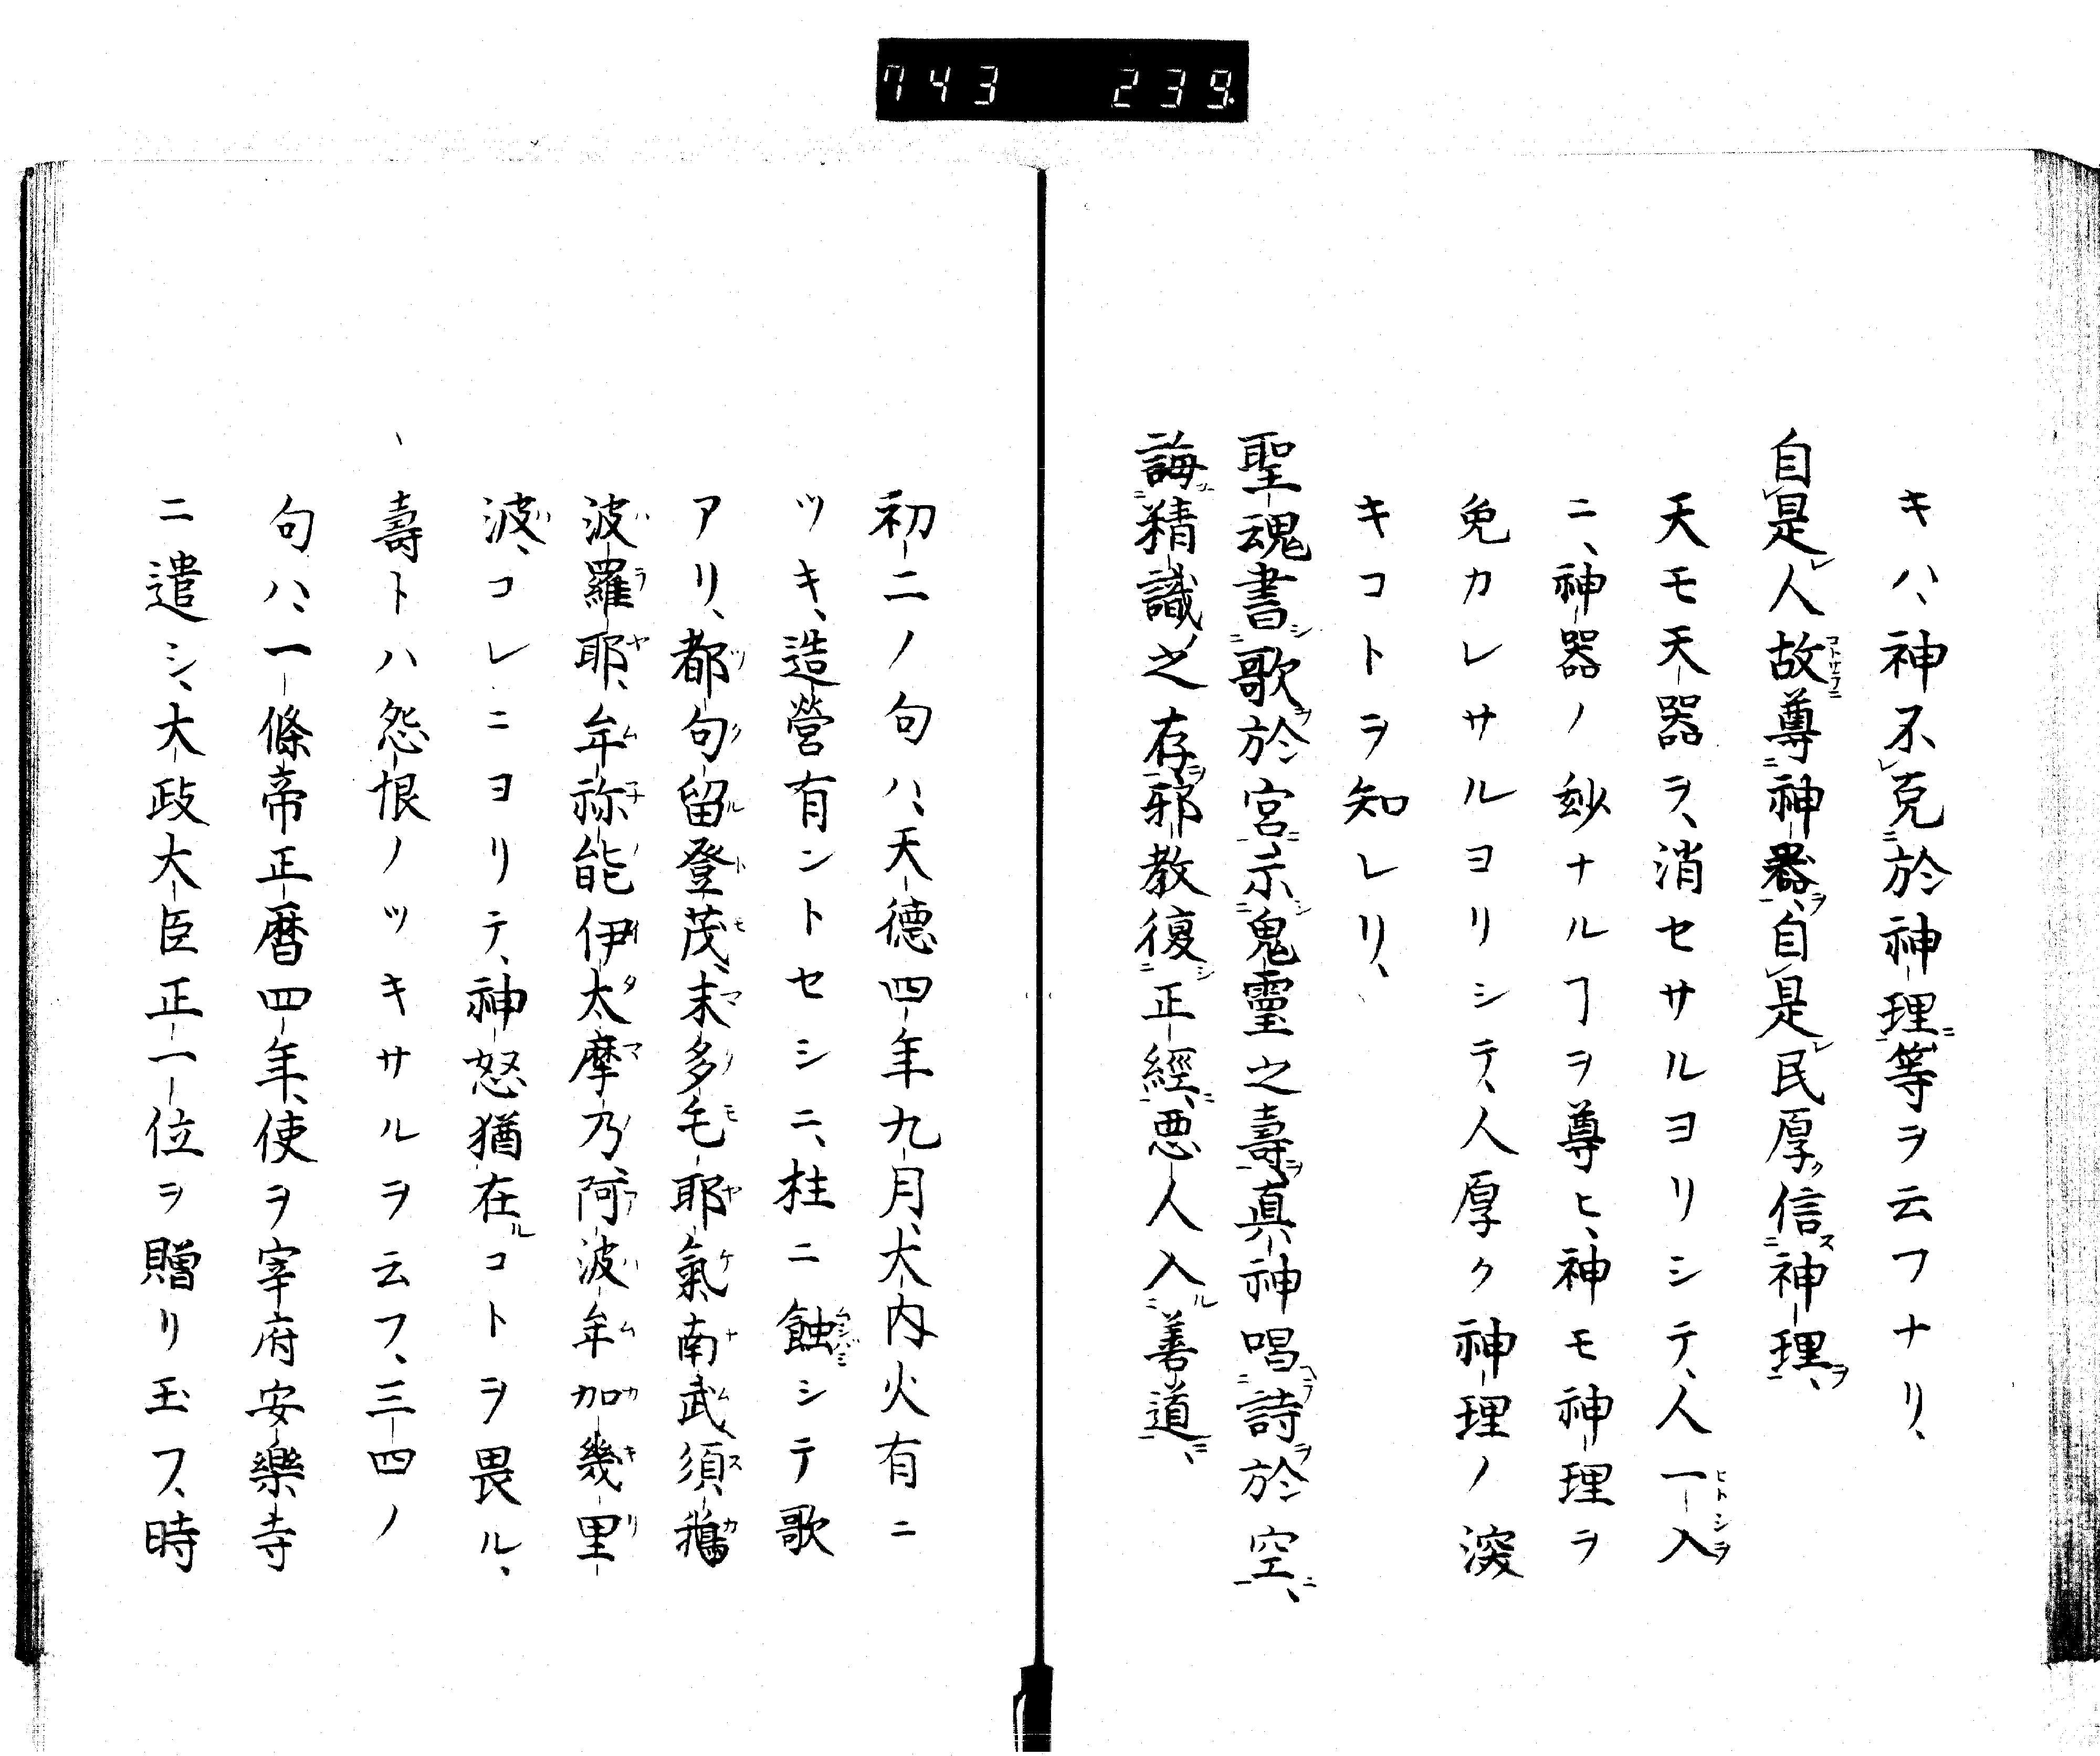 743 239
キハ、神不克於神理等ヲ云フナリ、
自是人故尊神器、自是民厚信神理、
天モ天器ヲ、消セサルヨリシテ、人一入
ニ、神器ノ玅ナルヿヲ尊ヒ、神モ神理ヲ
免カレサルヨリシテ、人厚ク神理ノ深
キコトヲ知レリ、
聖魂書歌於宮示鬼靈之壽、真神唱詩於空、
誨精識之存、邪教復正經、悪人入善道、
初二ノ句ハ、天德四年九月、大内火有ニ
ツキ、造營有ントセシニ、柱ニ蝕シテ歌
アリ、都句留登茂、末多毛耶氣南武須鵜
波羅耶、牟祢能伊太摩乃、阿波牟加幾里
波、コレニヨリテ、神怒猶在コトヲ畏ル、
壽トハ怨恨ノツキサルヲ云フ、三四ノ
句ハ、一條帝正暦四年、使ヲ宰府安樂寺
ニ遣シ、大政大臣正一位ヲ贈リ玉フ、時